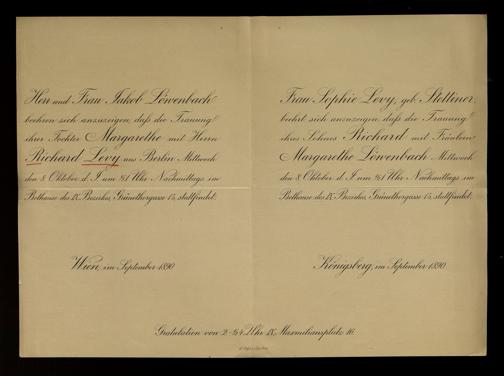 Herr und Frau Jakob Löwenbach
beehren sich anzuzeigen, daß die Trauung
ihrer Tochter Margarethe mit Herrn
Richard Levy aus Berlin Mittwoch
den 8. Oktober d. J. um ½1 Uhr Nachmittags im
Bethause des IX. Bezirkes, stattfindet.
Wien, im September 1890
Frau Sophie Levy, geb. Stettiner,
beehrt sich anzuzeigen daß die Trauung
ihres Sohnes Richard mit Fräulein
Margarethe Löwenbach Mittwoch
den 8. Oktober d. J. um ½1 Uhr Nachmittags im
Bethause des IX. Bezirkes, stattfindet.
Königsberg, im September 1890.
Gratulation von 2-¾4 Uhr IX. Maximiliansplatz 16.